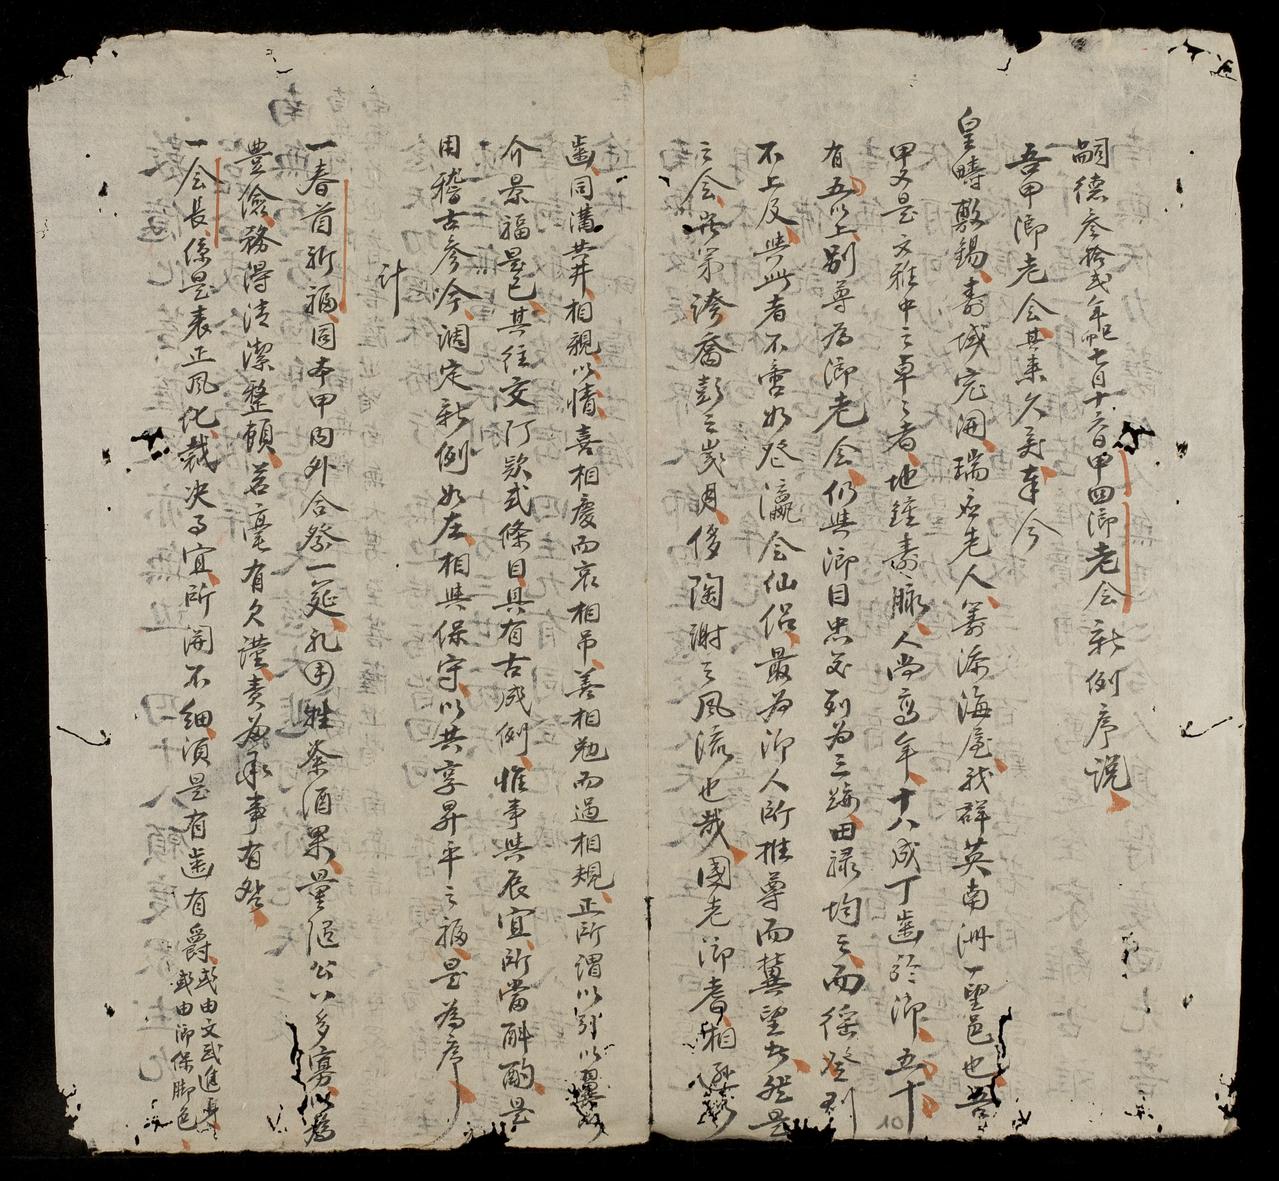 嗣德叁拾弍年己卯七月十六日甲四鄉老会新例序說
吾甲鄉老会其来久矣幸今
皇疇敷錫壽域宏開瑞应老人籌添海屋我群英南洲一望邑也吾
甲又是文雅中之卓之者地鍾壽脉人尚高年十八成丁齒於鄉五十
有五以上別尊為鄉老会仍與鄉目忠並列為三
田禄均之而徭役
不上及與此者不啻如登瀛会仙侣最為鄉人所推尊而冀望者然是
之会非第誇喬彭之歲月侈陶謝之風流也哉國老鄉耆相
歯同溝井相親以情喜相慶而哀相吊善相勉而過相規正所謂以
介景福是已其往交行欵式條目具有古成例惟事與辰宜所當斟酌是
用稽古参今調定新例如左相與保守以共享昇平之福是為序
計
一春首祈福同本甲内外合祭一筵礼用牲粢酒果量隨公人多寡以為
豊儉務得清潔整頓若毫有欠謹責為承事有咎
一会長係是表正風化裁决事宜所関不細須是有齒有爵或由文武進身或由鄉保脚色